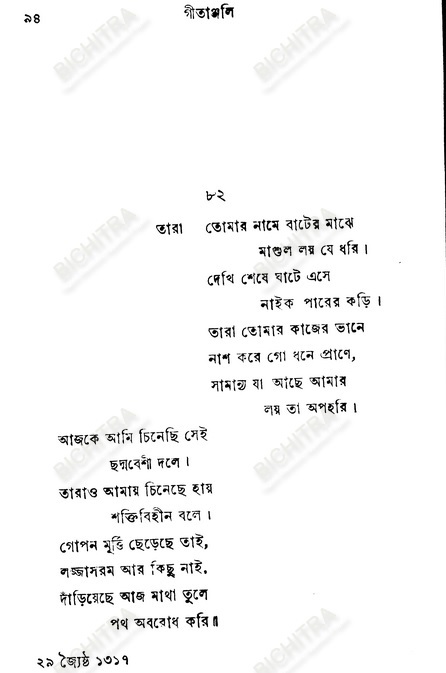 ৯৪
গীতাঞ্জলি
৮২
তারা তোমার নামে বাটের মাঝে
মাশুল লয় যে ধরি।
দেখি শেষে ঘাটে এসে
নাইক পারের কড়ি।
তারা তোমার কাজের ভানে
নাশ করে গো ধনে প্রাণে,
সামান্য যা আছে আমার
লয় তা অপহরি।
আজকে আমি চিনেছি সেই
ছদ্মবেশী দলে।
তারাও আমায় চিনেছে হায়
শক্তিবিহীন বলে।
গোপন মূর্ত্তি ছেড়েছে তাই,
লজ্জাসরম আর কিছু নাই,
দাঁড়িয়েছে আজ মাথা তুলে
পথ অবরোধ করি॥
২৯ জ্যৈষ্ঠ ১৩১৭
BICHITRA
BICHITRA
BICHITRA
BICHITRA
BICHITRA
BICHITRA
BICHITRA
BICHITRA